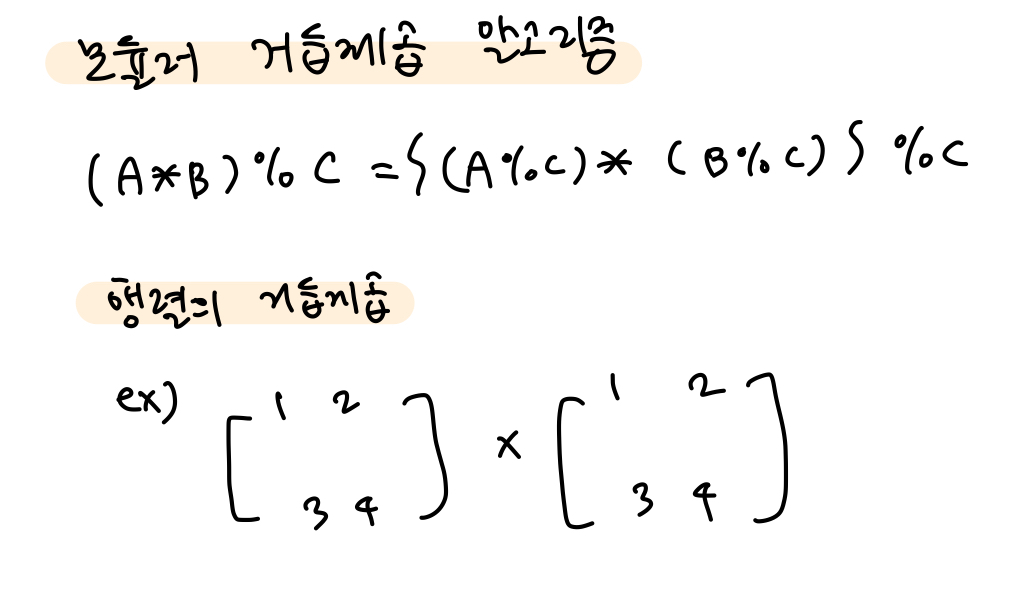 모듈러 거듭제곱 알고리즘
(A*B)%C={(A%C)*(B%C)}%C
행렬의 거듭제곱
ex) [1 2 3 4] x [1 2 3 4]